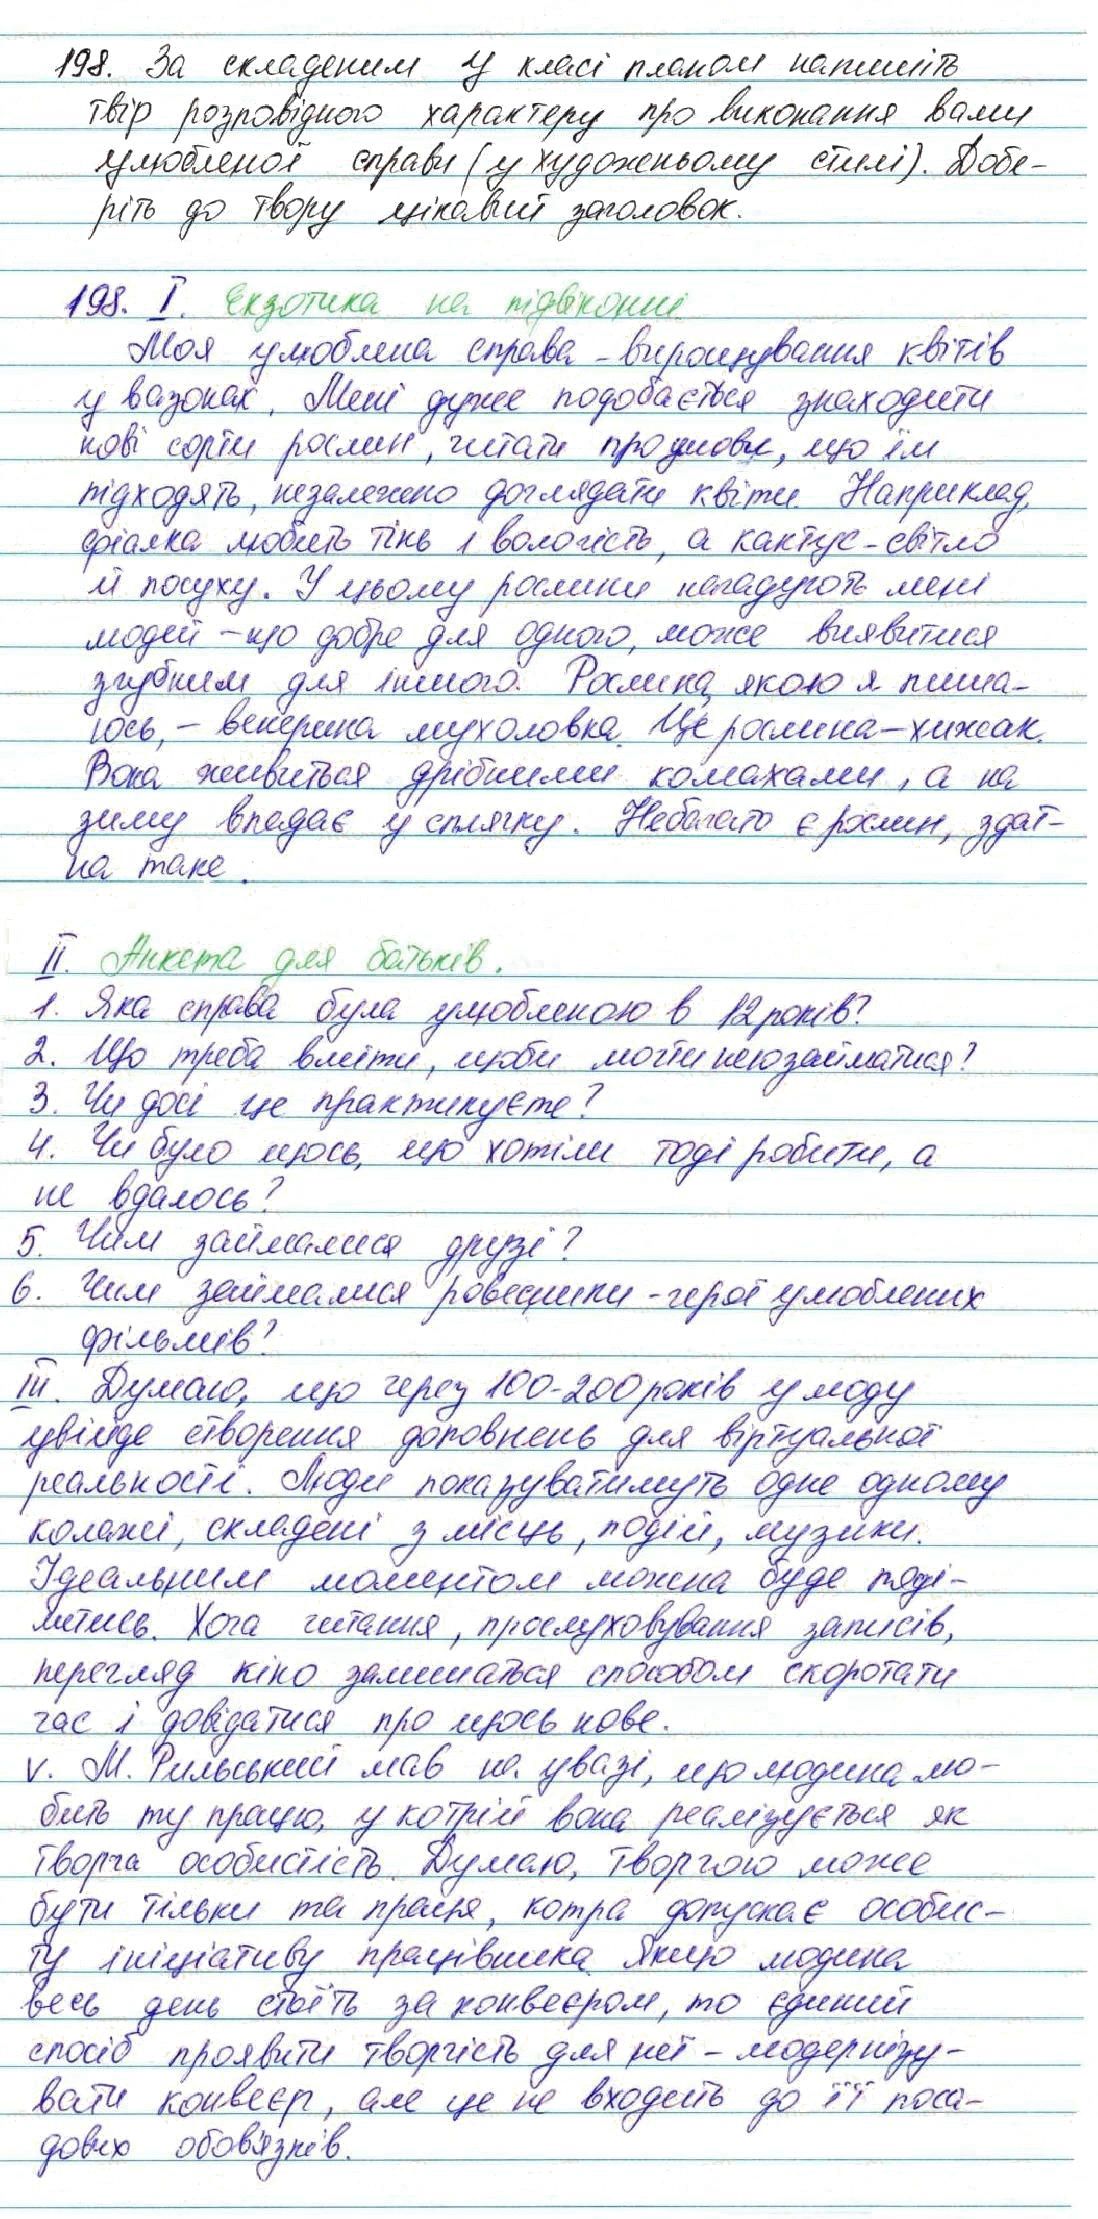 198. За складеним у класі планом напишіть
твір розповідного характеру про виконання вами
улюбленої справи (у художньому стилі). Добе-
ріть до твору цікавий заголовок.
198. I. Екзотика на підвіконні
Моя улюблена справа - вирощування квітів
у вазонах. Мені дуже подобається знаходити
нові сорти рослин, читати про умови, що їм
підходять, незалежно доглядати квіти. Наприклад,
фіалка любить тінь і вологість, а кактус - світло
й посуху. У цьому рослини нагадують мені
людей - що добре для одного, може виявитися
згубним для іншого. Рослина, якою я пиша-
юсь, - венерина мухоловка. Це рослина-хижак.
Вона живиться дрібними комахами, а на
зиму впадає у сплячку. Небагато є рослин, здат-
на таке.
II. Анкета для батьків.
1. Яка справа була улюбленою в 12 років?
2. Що треба вміти, щоби могти нею займатися?
3. Чи досі це практикуєте?
4. Чи було щось, що хотіли тоді робити, а
не вдалось?
5. Чим займалися друзі?
6. Чим займалися ровесники - герої улюблених
фільмів?
III. Думаю, що через 100-200 років у моду
увійде створення доповнень для віртуальної
реальності. Люди показуватимуть одне одному
колажі, складені з місць, подій, музики.
Ідеальним моментом можна буде поді-
литись. Хоча читання, прослуховування записів,
перегляд кіно залишаться способом скоротати
час і довідатися про щось нове.
V. М. Рильський мав на увазі, що людина лю-
бить ту працю, у котрій вона реалізується як
творча особистість. Думаю, творчою може
бути тільки та праця, котра допускає особис-
ту ініціативу працівника. Якщо людина
весь день стоїть за конвеєром, то єдиний
спосіб проявити творчість для неї - модернізу-
вати конвеєр, але це не входить до її поса-
дових обов'язків.